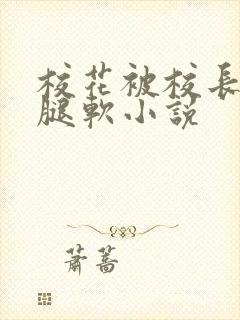 校花被校長
腿軟小說
蕭蒿